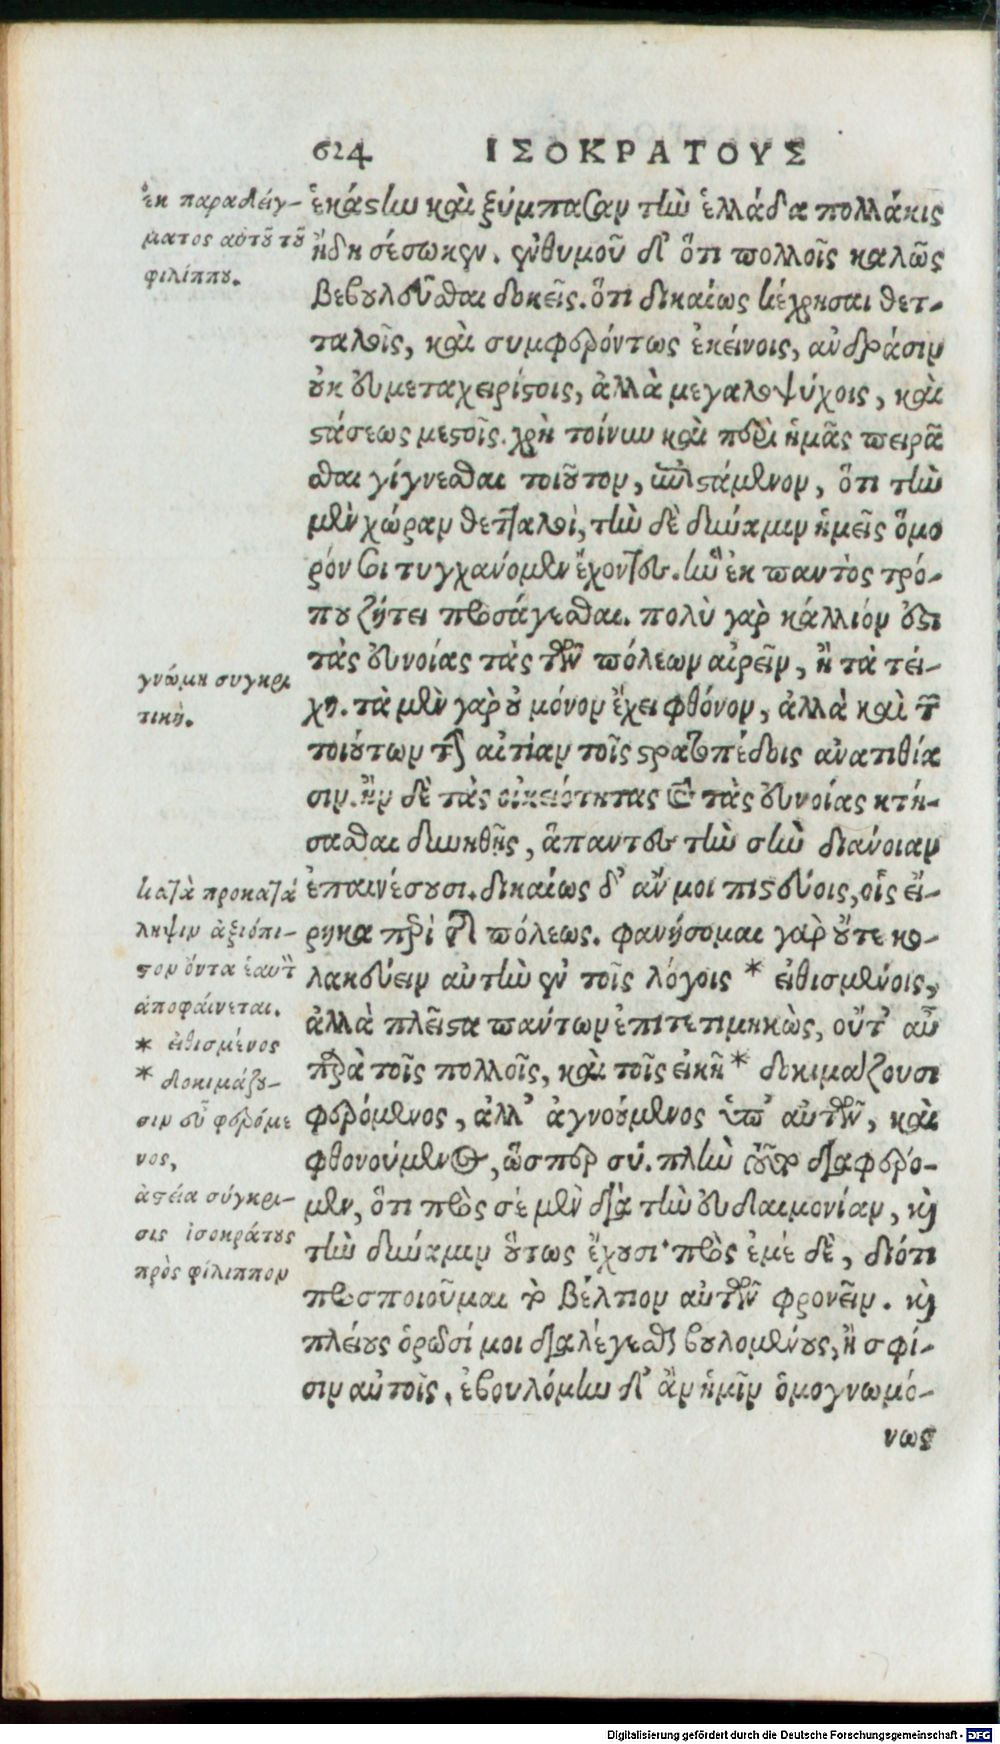 624 ΙΣΟΚΡΑΤΟΥΣ
ἐκ παραδείγ-
ματος αὐτοῦ τοῦ
φιλίππου.
ἑκάστην καὶ ξύμπασαν τὴν ἑλλάδα πολλάκις
ἤδη σέσωκεν. ἐνθυμοῦ δ' ὅτι πολλοῖς καλῶς
βεβουλεῦσθαι δοκεῖς. ὅτι δικαίως κέχρησαι θετ-
ταλοῖς, καὶ συμφερόντως ἐκείνοις, ἀνδράσιν
οὐκ εὐμεταχειρίστοις, ἀλλὰ μεγαλοψύχοις, καὶ
στάσεως μεστοῖς. χρὴ τοίνυν καὶ περὶ ἡμᾶς πειρᾶ
σθαι γίγνεσθαι τοιοῦτον, ἐπιστάμενον, ὅτι τὴν
μὲν χώραν θετταλοὶ, τὴν δὲ δύναμιν ἡμεῖς ὅμο
ρόν σοι τυγχάνομεν ἔχοντες. ἣν ἐκ παντὸς τρό-
που ζήτει προσάγεσθαι. πολὺ γὰρ κάλλιόν ἐστι
τὰς εὐνοίας τὰς τῶν πόλεων αἱρεῖν, ἢ τὰ τεί-
γνώμη συγκρι
τική.
χη. τὰ μὲν γὰρ οὐ μόνον ἔχει φθόνον, ἀλλὰ καὶ τῶν
τοιούτων τὴν αἰτίαν τοῖς στρατοπέδοις ἀνατιθέα
σιν. ἢν δὲ τὰς οἰκειότητας καὶ τὰς εὐνοίας κτή-
σασθαι δυνηθῇς, ἅπαντες τὴν σὴν διάνοιαν
ἐπαινέσουσι. δικαίως δ' ἄν μοι πιστεύοις, οἷς εἴ-
κατὰ προκατά
ληψιν ἀξιόπι-
στον ὄντα ἑαυτὸν
ἀποφαίνεται.
* εἰθισμένος
* δοκιμάζου-
σιν εὖ φερόμε
νος,
ἀστεία σύγκρι-
σις ἰσοκράτους
πρὸς φίλιππον
ρηκα περὶ τῆς πόλεως. φανήσομαι γὰρ οὔτε κο-
λακεύειν αὐτὴν ἐν τοῖς λόγοις * εἰθισμένοις,
ἀλλὰ πλεῖστα πάντων ἐπιτετιμηκὼς, οὔτ' αὖ
παρὰ τοῖς πολλοῖς, καὶ τοῖς εἰκῆ * δοκιμάζουσι
φερόμενος, ἀλλ' ἀγνοούμενος ὑπ' αὐτῶν, καὶ
φθονούμενος, ὥσπερ σύ. πλὴν τοσοῦτον διαφέρο-
μεν, ὅτι πρὸς σὲ μὲν διὰ τὴν εὐδαιμονίαν, καὶ
τὴν δύναμιν οὕτως ἔχουσι· πρὸς ἐμὲ δὲ, διότι
προσποιοῦμαι τὸ βέλτιον αὐτῶν φρονεῖν. καὶ
πλείους ὁρῶσί μοι διαλέγεσθαι βουλομένους, ἢ σφί-
σιν αὐτοῖς. ἐβουλόμην δ' ἂν ἡμῖν ὁμογνωμό-
νως
Digitalisierung gefördert durch die Deutsche Forschungsgemeinschaft - DFG